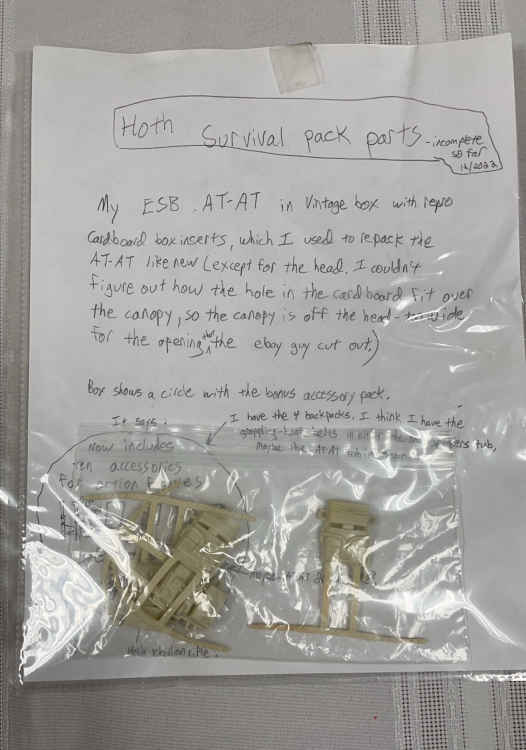 Hoth Survival pack parts - incomplete
so far
My ESB AT-AT in Vintage box with repro
Cardboard box inserts, which I used to repack the
AT-AT like new (except for the head. I couldn't
figure out how the hole in the cardboard fit over
the canopy, so the canopy is off the head - too wide
for the opening that the ebay guy cut out.)
Box shows a circle with the bonus accessory pack.
It says:
I have the 4 backpacks. I think I have the
tub,
Now includes
ten accessories
for action figures